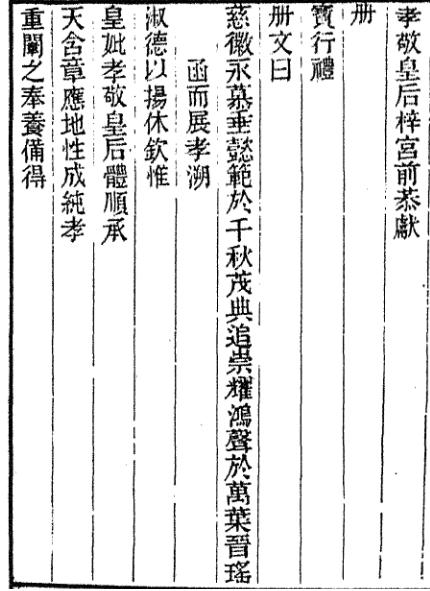 孝敬皇后梓宮前恭獻
册
寶行禮
册文曰
慈徽永慕垂懿範於千秋茂典追崇耀鴻聲於萬葉晉瑤
函而展孝溯
淑德以揚休欽惟
皇妣孝敬皇后體順承
天含章應地性成純孝
重闈之奉養備得